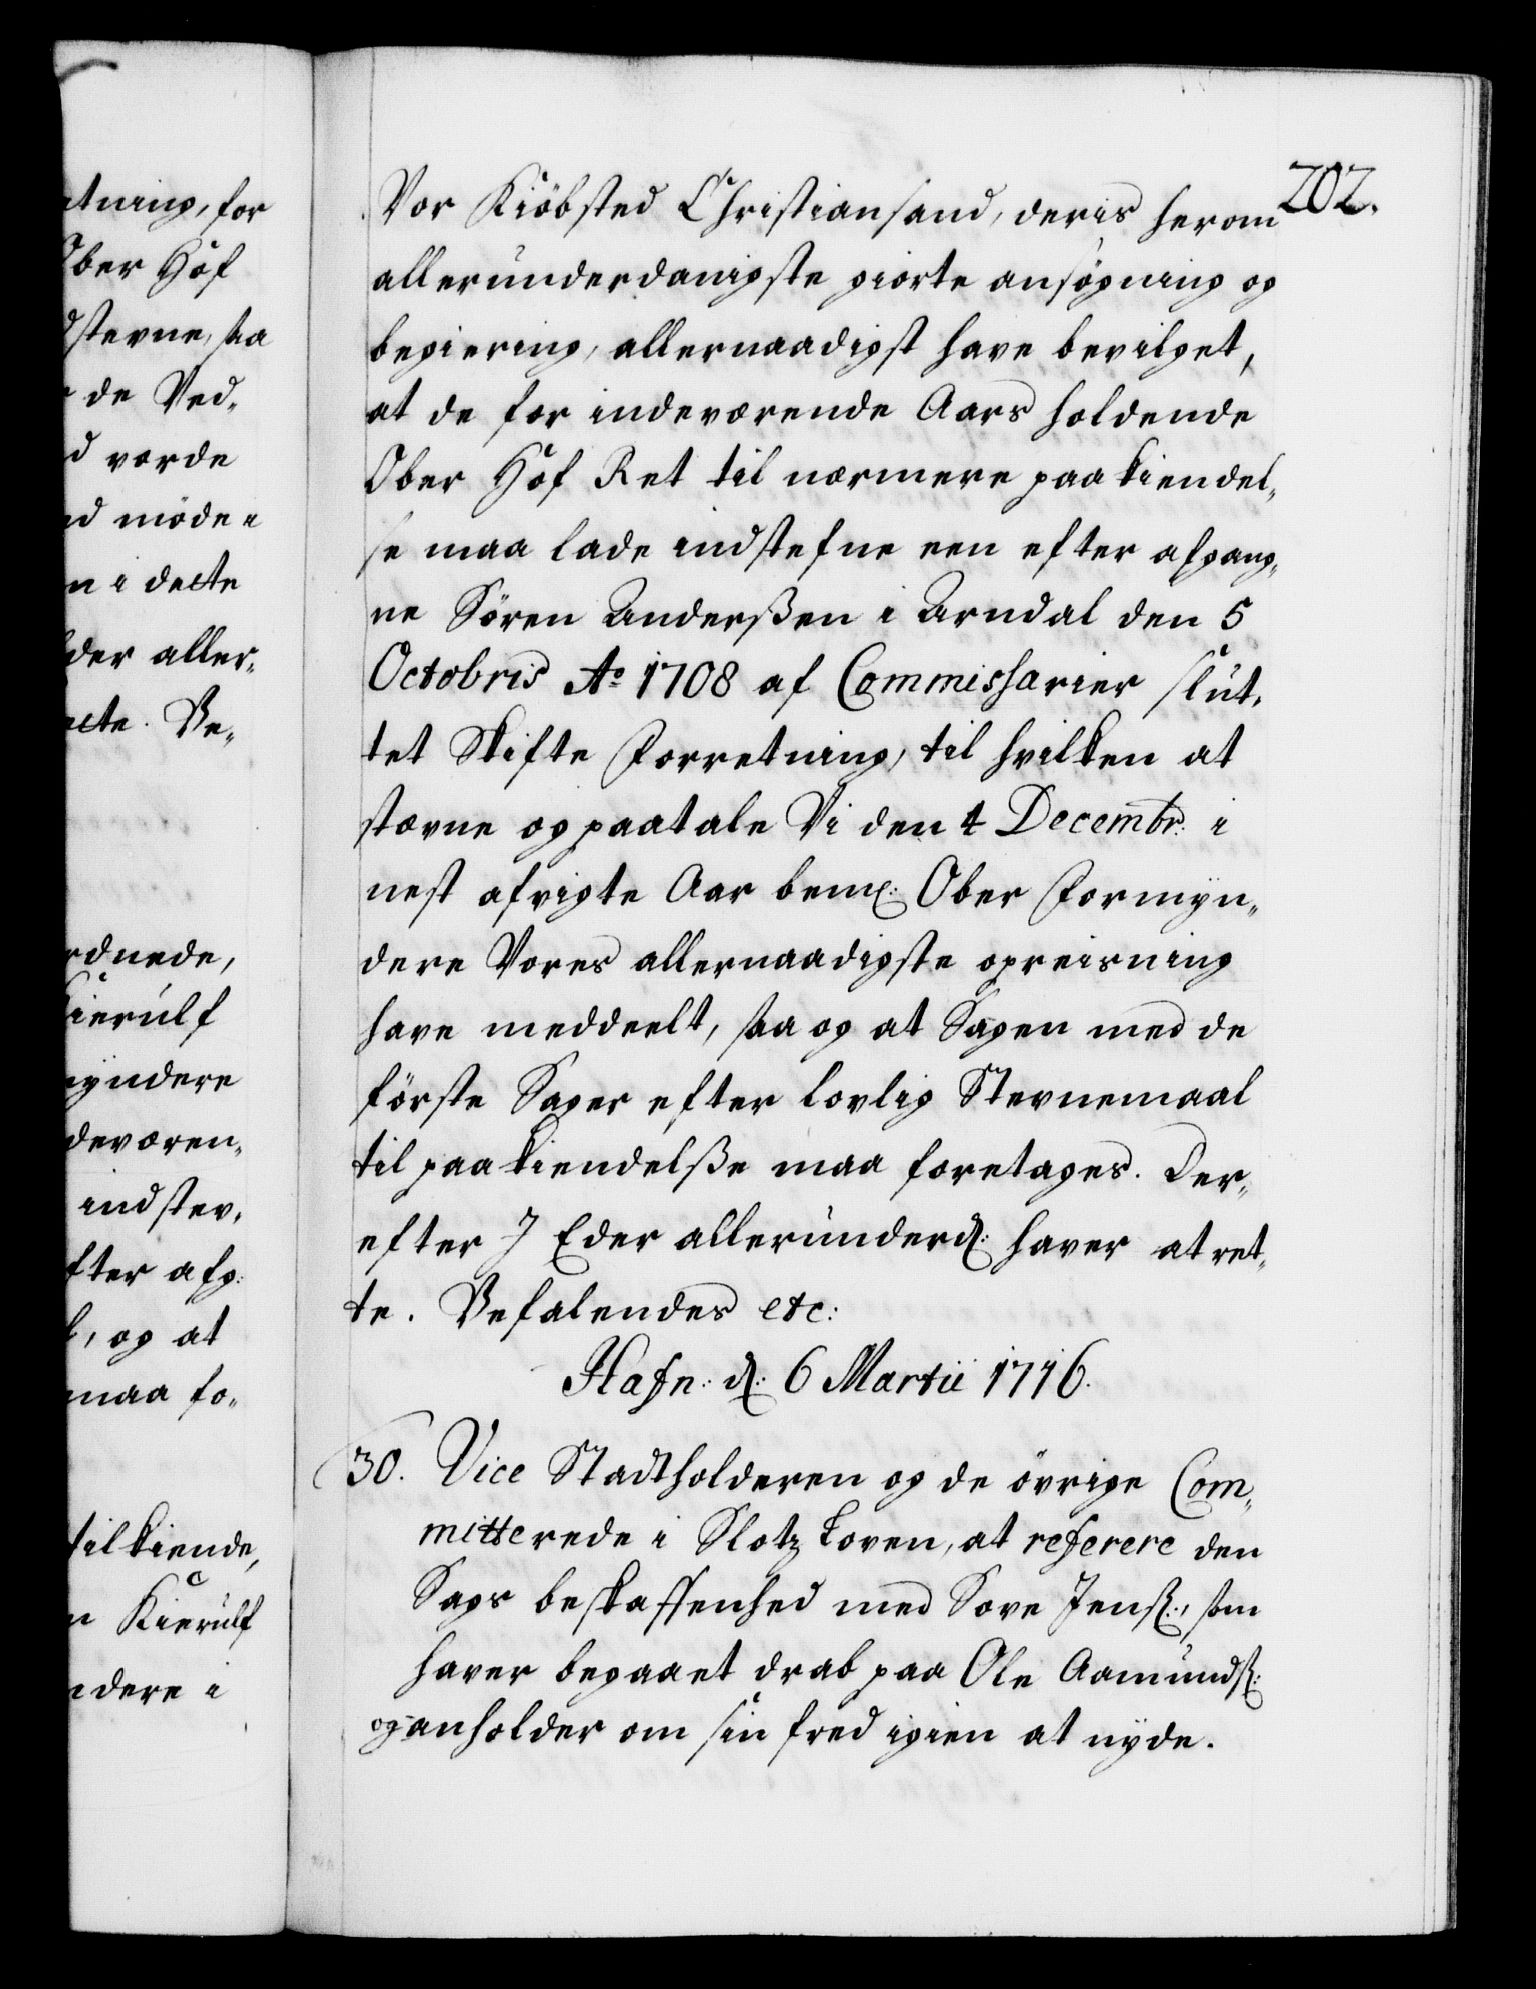 ntning, for
Ober Hof
dstevne, saa
de Ved„
d vorde
nd möde i
n i dette
der aller„
ette. Be„
rdnede,
Kierulf
nyndere
deværen„
indstev„
fter afg:
l, og at
maa fo„
tilkiende,
n Kierulf
ndere i
202.
Vor Kiöbsted Christiansand, deris herom
allerunderdanigste giorte ansögning og
begiering, allernaadigst have bevilget,
at de for indeværende Aars holdende
Ober Hof Ret til nærmere paakiendel„
se maa lade indstefne een efter afgang„
ne Sören Anderßen i Arndal den 5
Octobris Ao 1708 af Commissarier slut„
tet Skifte Forretning, til hvilken at
stævne og paatale Vi den 4 Decembr: i
nest afvigte Aar bemt: Ober Formÿn„
dere Vores allernaadigste opreisning
have meddeelt, saa og at Sagen med de
förste Sager efter lovlig Stevnemaal
til paakiendelße maa foretages. Der„
efter I Eder allerunderd: haver at ret„
te. Befalendes etc:
Hafn: d: 6 Martii 1716.
30. Vice Stadtholderen og de övrige Com„
mitterede i Slotz Loven, at referere den
Sags beskaffenhed med Sove Jenß:, som
haver begaaet drab paa Ole Aamundß:
og anholder om sin fred igien at nÿde.